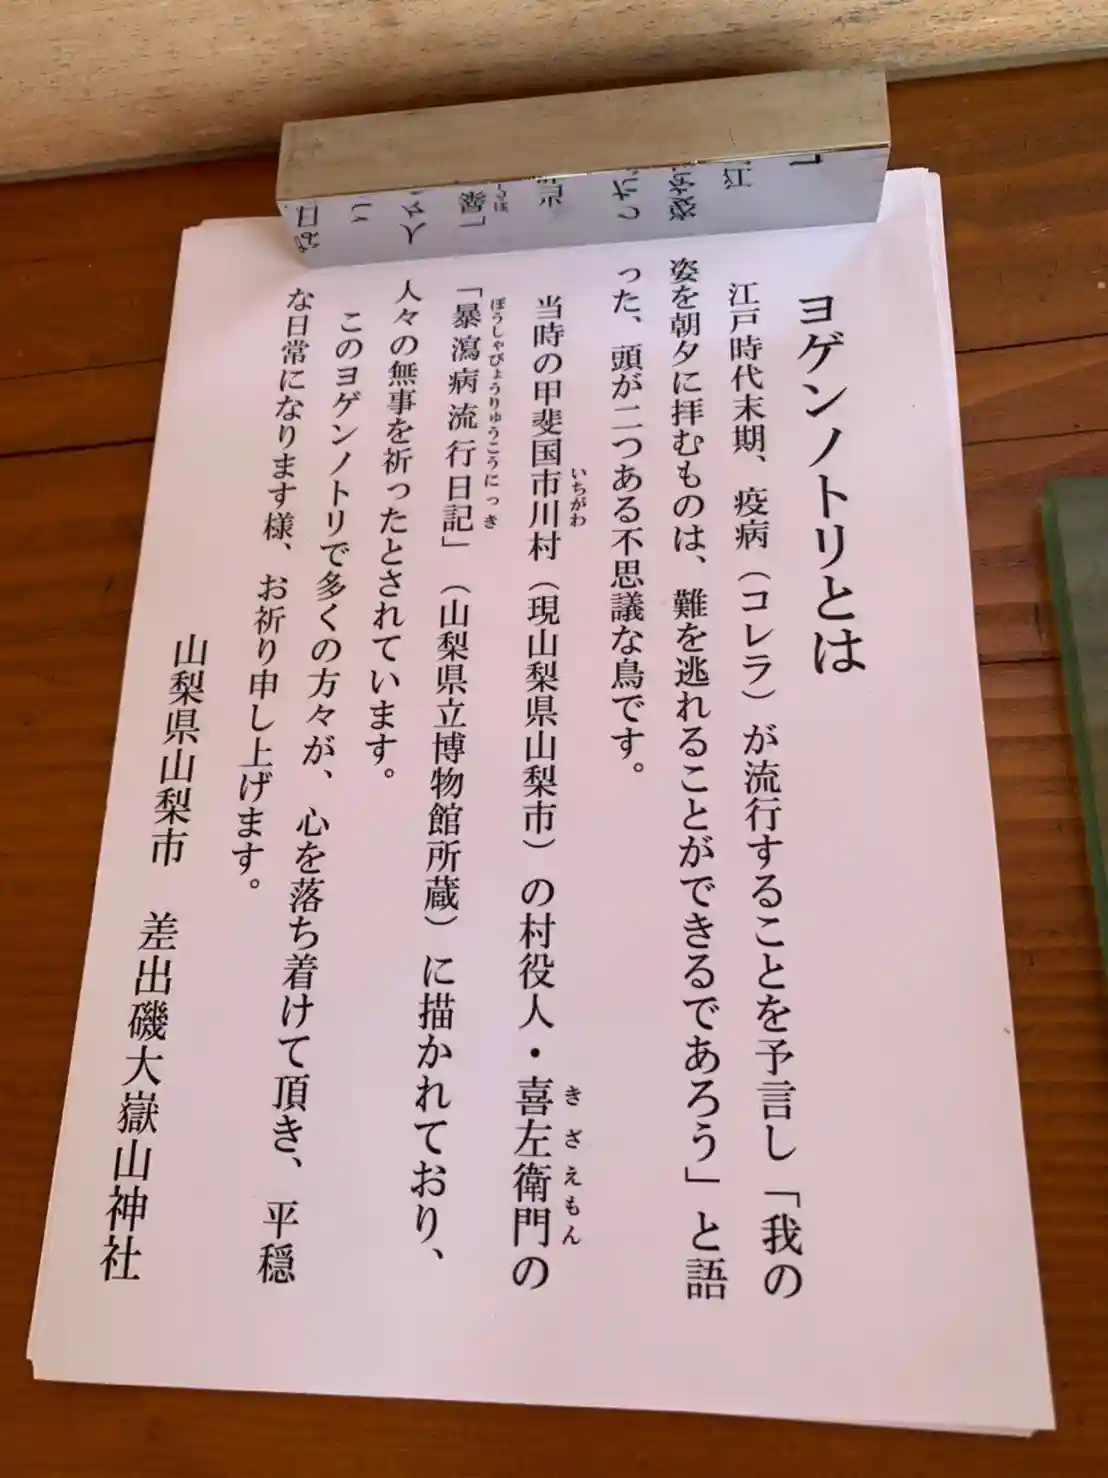 ヨゲンノトリとは
江戸時代末期、疫病（コレラ）が流行することを予言し「我の
姿を朝夕に拝むものは、難を逃れることができるであろう」と語
った、頭が二つある不思議な鳥です。
当時の甲斐国市川村（現山梨県山梨市）の村役人・喜左衛門の
いちがわ
きざえもん
「暴瀉病流行日記」（山梨県立博物館所蔵）に描かれており、
ぼうしゃびょうりゅうこうにっき
人々の無事を祈ったとされています。
このヨゲンノトリで多くの方々が、心を落ち着けて頂き、平穏
な日常になります様、お祈り申し上げます。
山梨県山梨市　差出磯大嶽山神社